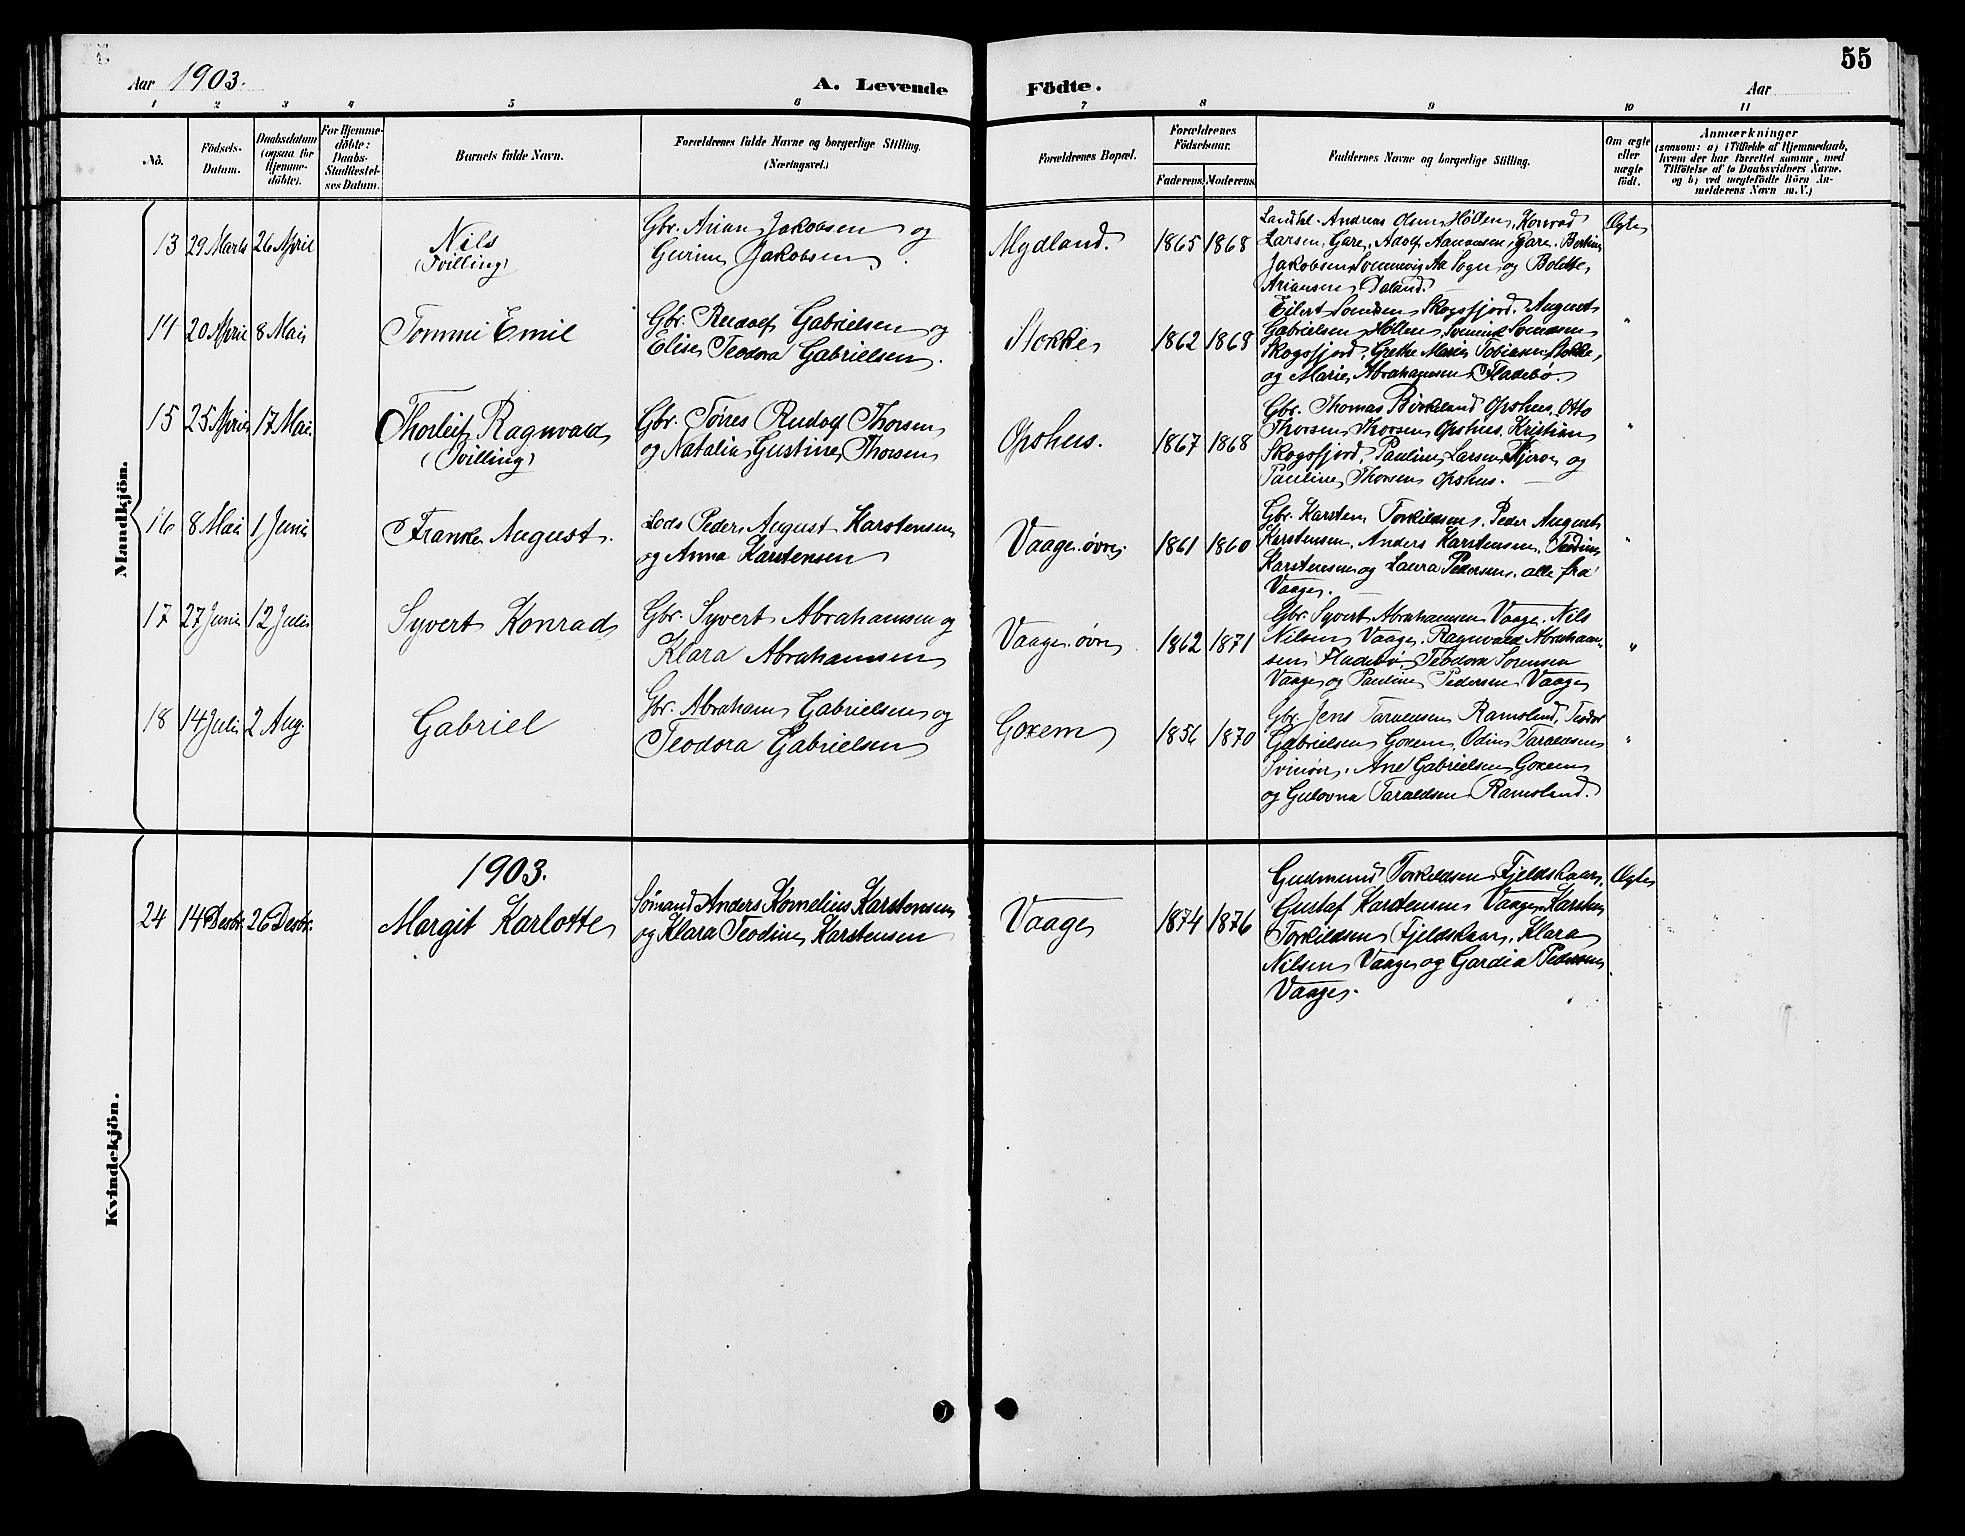 55
Aar 1903.
A. Levende Födte.
Aar
1 2 3 4 5 6 7 8 9 10 11
No.
Födsels-
Datum.
Daabsdatum
(ogsaa for
Hjemme-
döbte).
For Hjemme-
döbte:
Daabs-
Stadfæstel-
ses Datum.
Barnets fulde Navn.
Forældrenes fulde Navne og borgerlige Stilling.
(Næringsvei.)
Forældrenes Bopæl.
Forældrenes
Födselsaar.
Faderens. Moderens.
Faddernes Navne og borgerlige Stilling.
Om ægte
eller
uægte
født.
Anmærkninger
(saasom: a) i Tilfælde af Hjemmedaab,
hvem der har forrettet samme, med
Tilföielse af to Daabsvidners Navne.
og b) ved uægtefödte Börn An-
melderens Navn m. V.)
Mandkjön.
13 29 Marts 26 April
Nils
(Tvilling)
Gbr. Arian Jakobsen og
Gurine Jakobsen.
Mydland. 1865 1868
Landhl. Andreas Olsen Höllen, Konrad
Larsen, Gare, Adolf Aanonsen, Gare, Bertine
Jakobsen, Aa Sogn og Bolette
Ariansen Daland.
Ægte
14 20 April 8 Mai
Tommi Emil
Gbr. Rudolf Gabrielsen og
Elise Teodora Gabrielsen.
Stokke 1862 1868
Eilert Svendsen Skogsfjord, August
Gabrielsen Höllen, Svendsen
Skogsfjord, Grethe Marie Tobiasen Stokke,
og Marie Abrahamsen Fladebø.
"
15 25 April 17 Mai.
Thorleif Ragnvald
(Tvilling)
Gbr. Tørres Rudolf Thorsen
og Natalia Gustine Thorsen
Opshus. 1867 1868
Gbr. Thomas Birkeland Opshus, Otto
Thorsen, Thorsen Opshus, Kristian
Skogsfjord, Pauline Larsen og
Pauline Thorsen Opshus.
"
16 8 Mai 1 Juni
Frank August.
Lods Peder August Karstensen
og Anna Karstensen
Vaage øvre. 1861 1860
Gbr. Karsten Torkildsen, Peder August
Karstensen, Anders Karstensen, Teodine
Karstensen og Laura Pedersen, alle fra
Vaage.
"
17 27 Juni 12 Juli
Syvert Konrad
Gbr. Syvert Abrahamsen og
Klara Abrahamsen
Vaage øvre 1862 1871
Gbr. Syvert Abrahamsen Vaage, Nils
Nilsen Vaage, Ragnvald Abraham-
sen Fladebø, Teodora Sørensen
Vaage og Pauline Pedersen Vaage
"
18 14 Juli 2 Aug.
Gabriel
Gbr. Abraham Gabrielsen og
Teodora Gabrielsen
Goxem 1856 1870
Gbr. Jens Taraldsen Ramsland, Teodor
Gabrielsen Goxem, Odin Taraldsen
Svinør, Ane Gabrielsen Goxem
og Gulovna Taraldsen Ramsland.
"
Kvindekjön.
1903.
24 14 Desbr. 26 Desbr.
Margit Karlotte
Sømand Anders Kornelius Karstensen
og Klara Teodine Karstensen
Vaage 1874 1876
Gudmund Torkildsen Fjeldskaar,
Gustaf Karstensen Vaage, Karsten
Torkildsen Fjeldskaar, Klara
Nilsen Vaage og Gardia Pedersen
Vaage.
Ægte